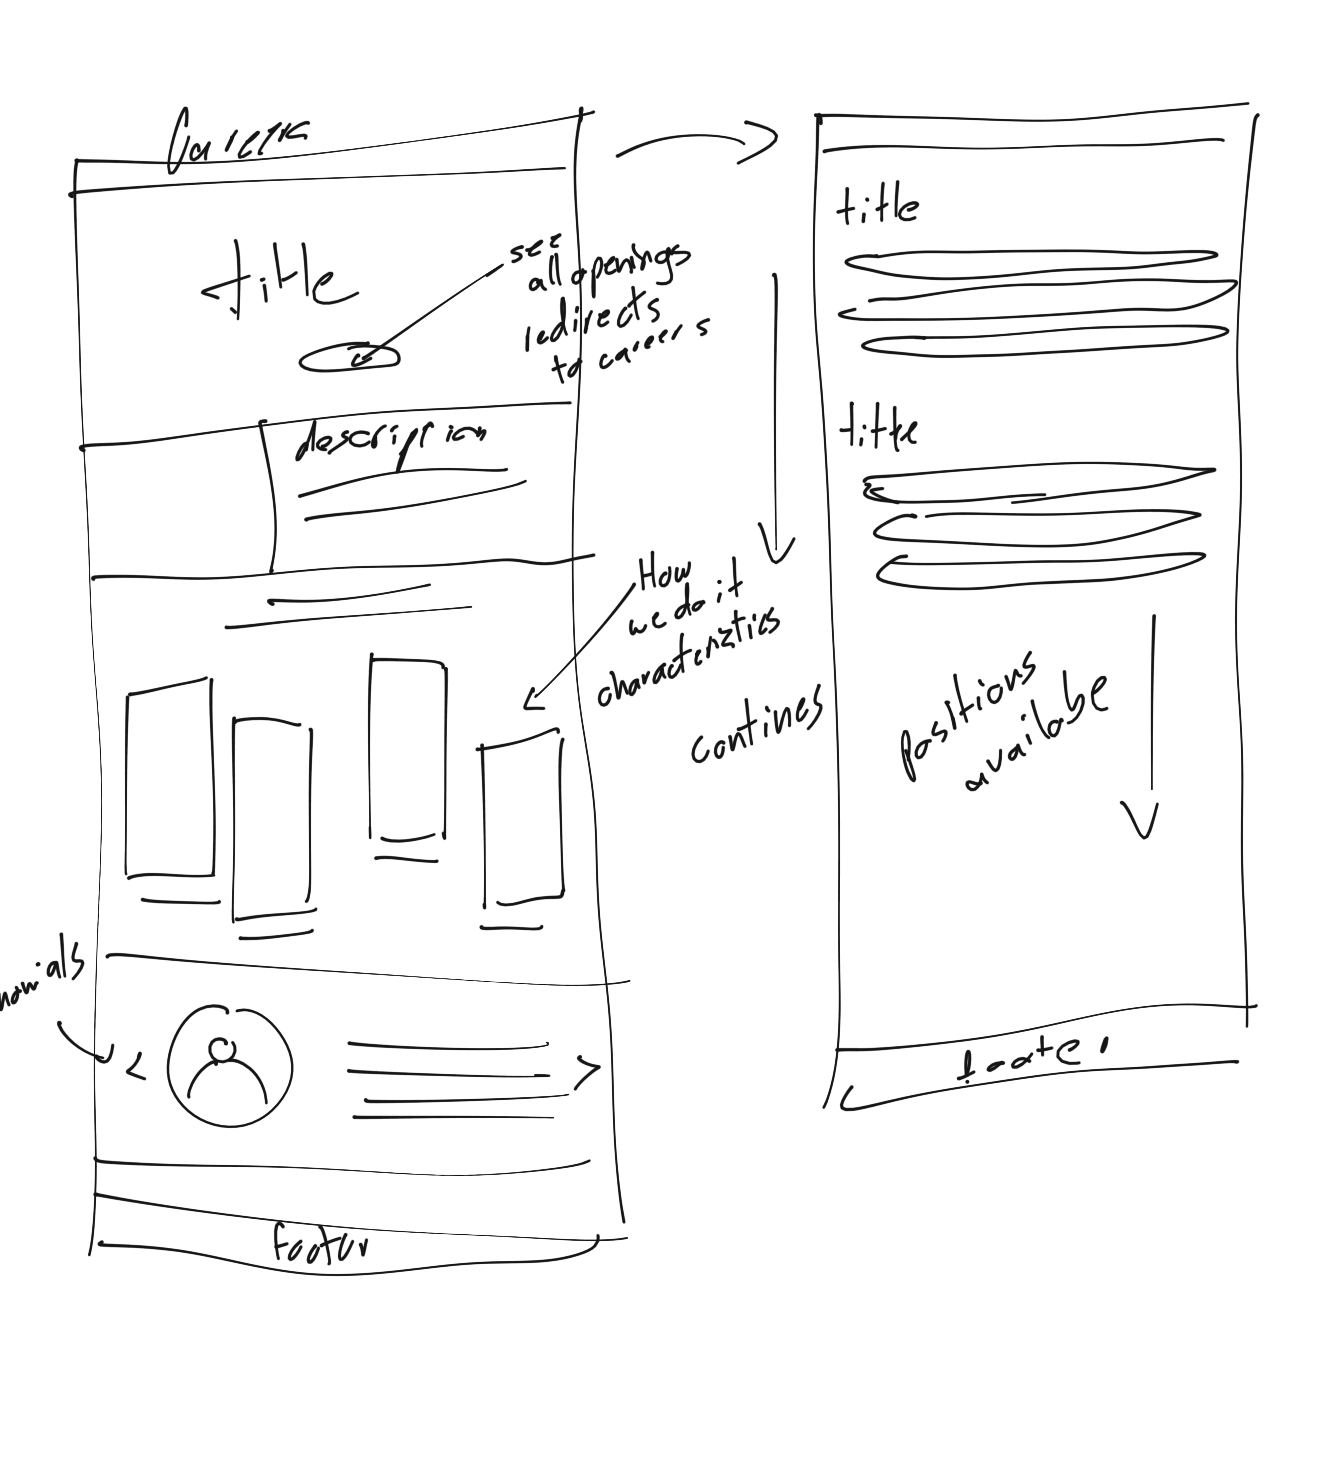 Careers
title
see
all openings
redirects
to careers
description
How
we do it
characteristics
contines
footer
title
title
positions
available
footer